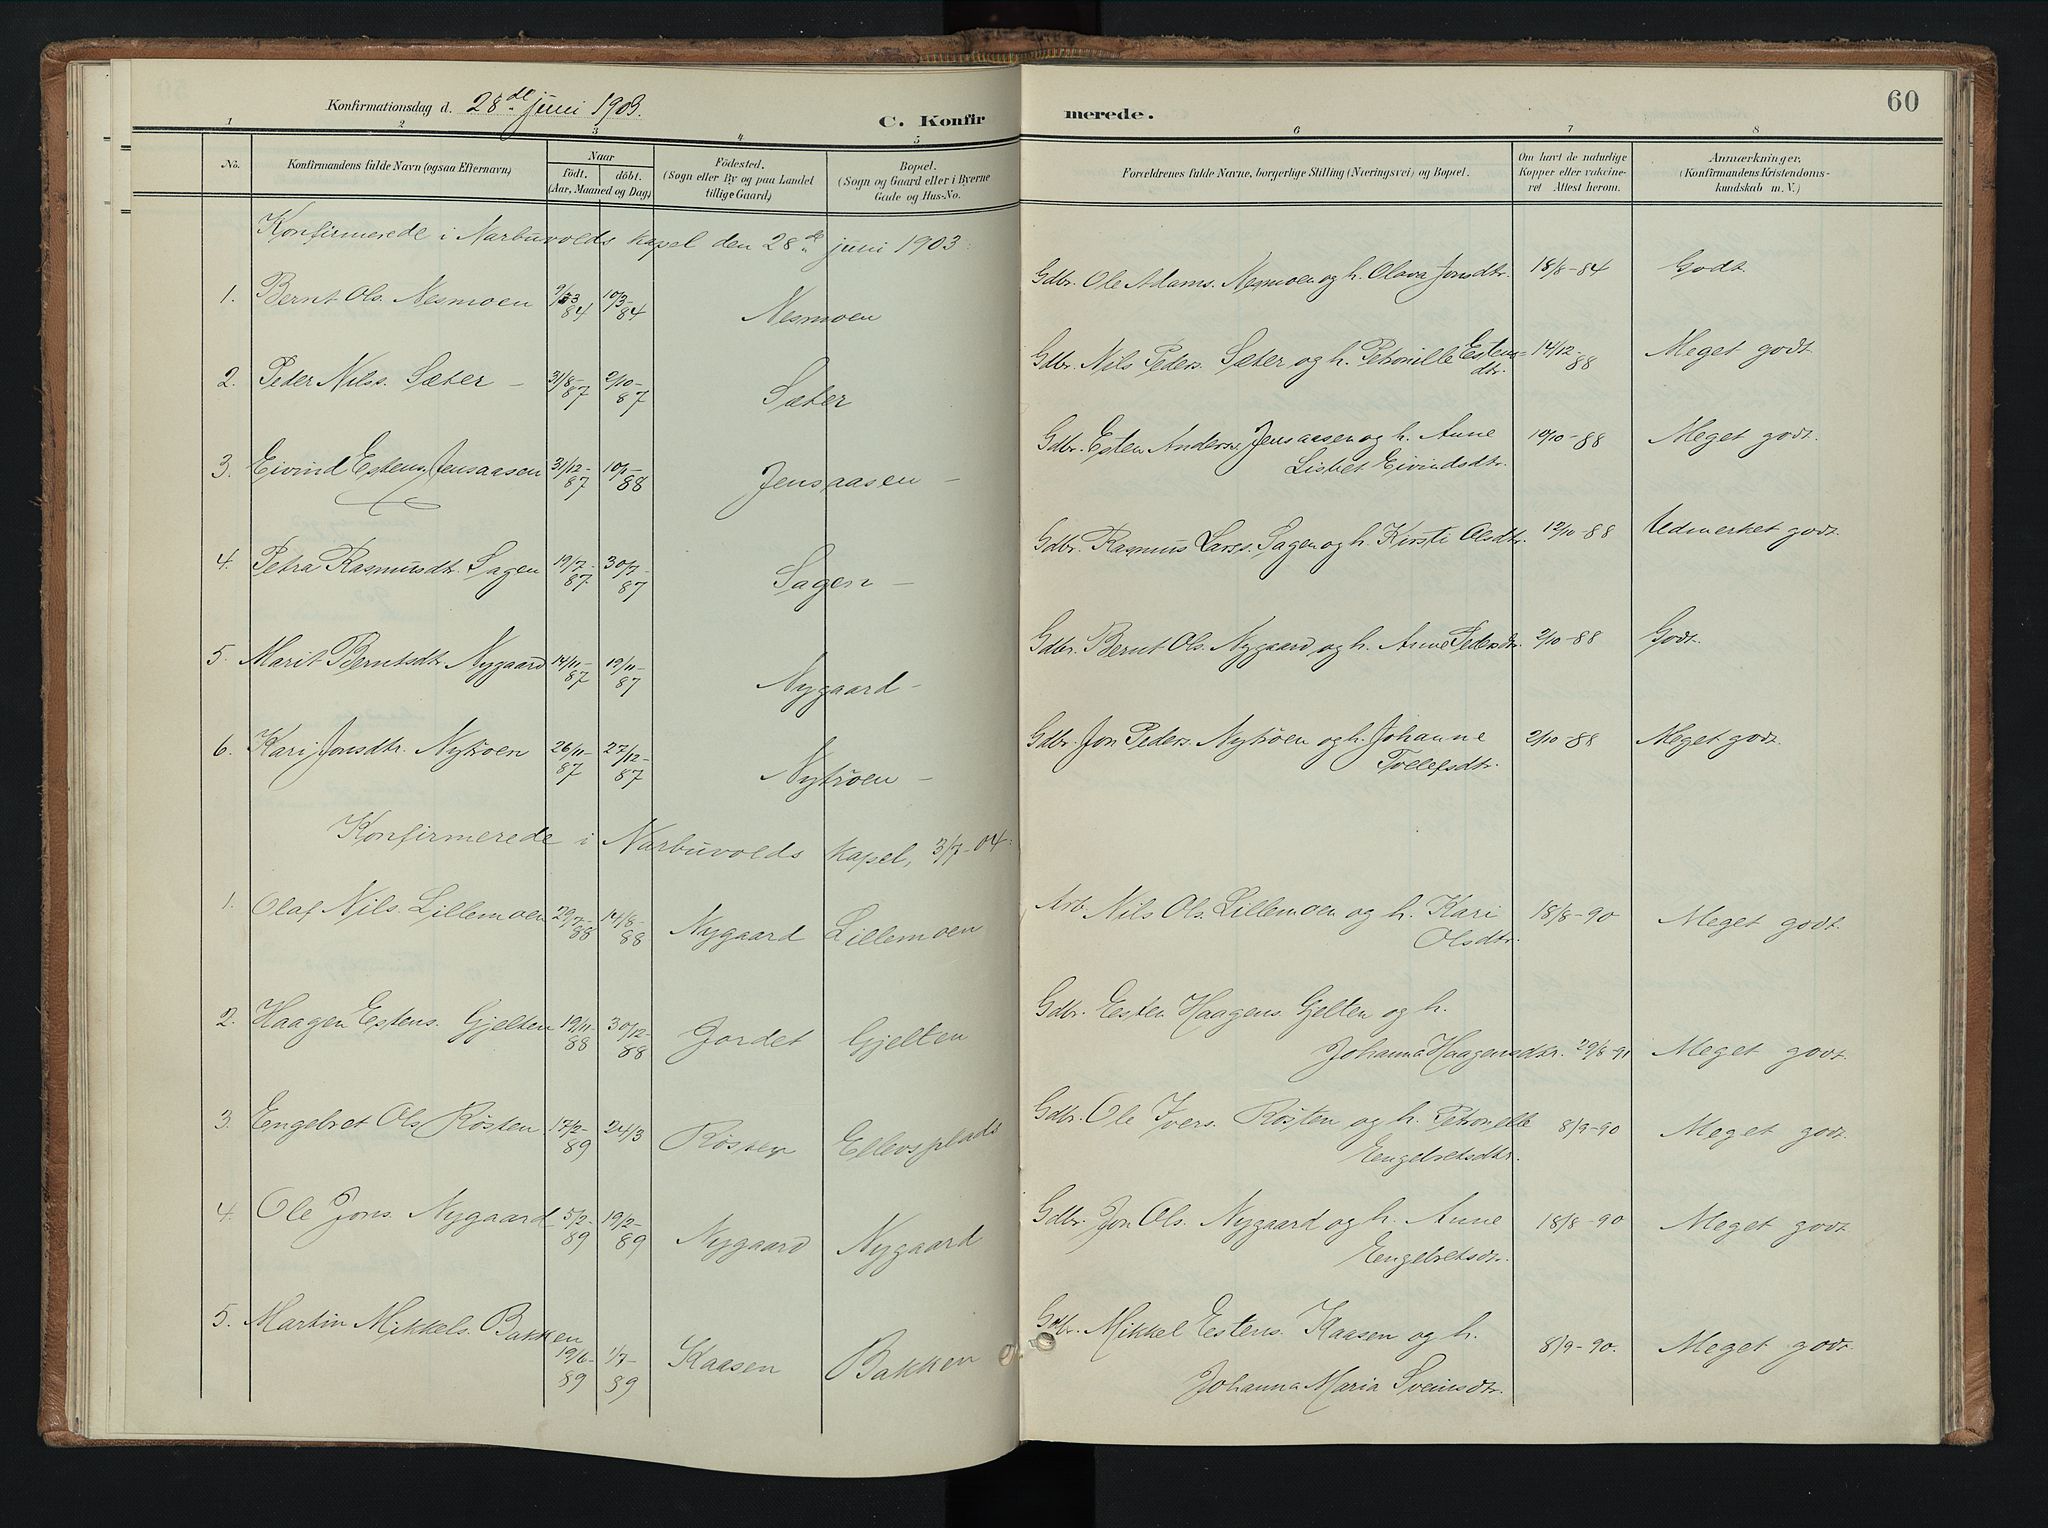 Konfirmationsdag d. 28de juni 1903.
C. Konfirmerede.
60
1 2 3 4 5 6 7 8
No.
Konfirmandens fulde Navn (ogsaa Efternavn)
Naar
födt. döbt.
(Aar, Maaned og Dag)
Födested.
(Sogn eller By og paa Landet
tillige Gaard)
Bopæl.
(Sogn og Gaard eller i Byerne
Gade og Hus-No.
Forældrenes fulde Navne, borgerlige Stilling (Næringsvei) og Bopæl.
Om havt de naturlige
Kopper eller vakcine-
ret Attest herom.
Anmærkninger,
(Konfirmandens Kristendoms-
kundskab m. V.)
Konfirmerede i Narbuvolds kapel den 28de juni 1903:
1. Bernt Ols. Nesmoen 84 10/3-84 Nesmoen Gdbr. Ole Adams. Nesmoen og h. Olava Jonsdtr. 18/8-84 Godt.
2. Peder Nilss. Sæter - 31/8-87 2/10-87 Sæter Gdbr. Nils Peders. Sæter og h. Petronille Estens-
dtr. 14/12-88 Meget godt.
3. Eivind Estens. Jensaasen 31/12-87 10/1-88 Jensaasen - Gdbr. Esten Anders. Jensaasen og h. Anne
Lisbet Eivindsdtr. 10/10-88 Meget godt.
4. Petra Rasmusdtr. Sagen 19/7-87 30/7-87 Sagen - Gdbr. Rasmus Larss. Sagen og h. Kirsti Olsdtr. 12/10-88 Udmerket godt.
5. Marit Berntsdtr. Nygaard 14/11-87 19/11-87 Nygaard - Gdbr. Bernt Ols. Nygaard og h. Anne Pedersdtr. 2/10-88 Godt.
6. Kari Jonsdtr. Nytrøen 26/11-87 27/12-87 Nytrøen - Gdbr. Jon Peders. Nytrøen og h. Johanne
Tollefsdtr. 2/10-88 Meget godt.
Konfirmerede i Narbuvolds kapel, 3/7-04:
1. Olaf Nils. Lillemoen 29/7-88 14/8-88 Nygaard Lillemoen Arb. Nils Ols. Lillemoen og h. Kari
Olsdtr. 18/8-90 Meget godt.
2. Haagen Estens. Gjelten 19/11-88 30/12-88 Jordet Gjelten Gdbr. Esten Haagens. Gjelten og h.
Johanna Haagensdtr. 29/8-91 Meget godt.
3. Engebret Ols. Røsten 17/2-89 24/3 Røsten Ellevsplads Gdbr. Ole Ivers. Røsten og h. Petronelle
Engebretsdtr. 8/9-90 Meget godt.
4. Ole Jons. Nygaard 5/2-89 19/2-89 Nygaard Nygaard Gdbr. Jon Ols. Nygaard og h. Anne
Engebretsdtr. 18/8-90 Meget godt.
5. Martin Mikkels. Bakken 19/6-89 1/7-89 Kaasen Bakken Gdbr. Mikkel Estens. Kaasen og h.
Johanna Maria Svensdtr. 8/9-90. Meget godt.